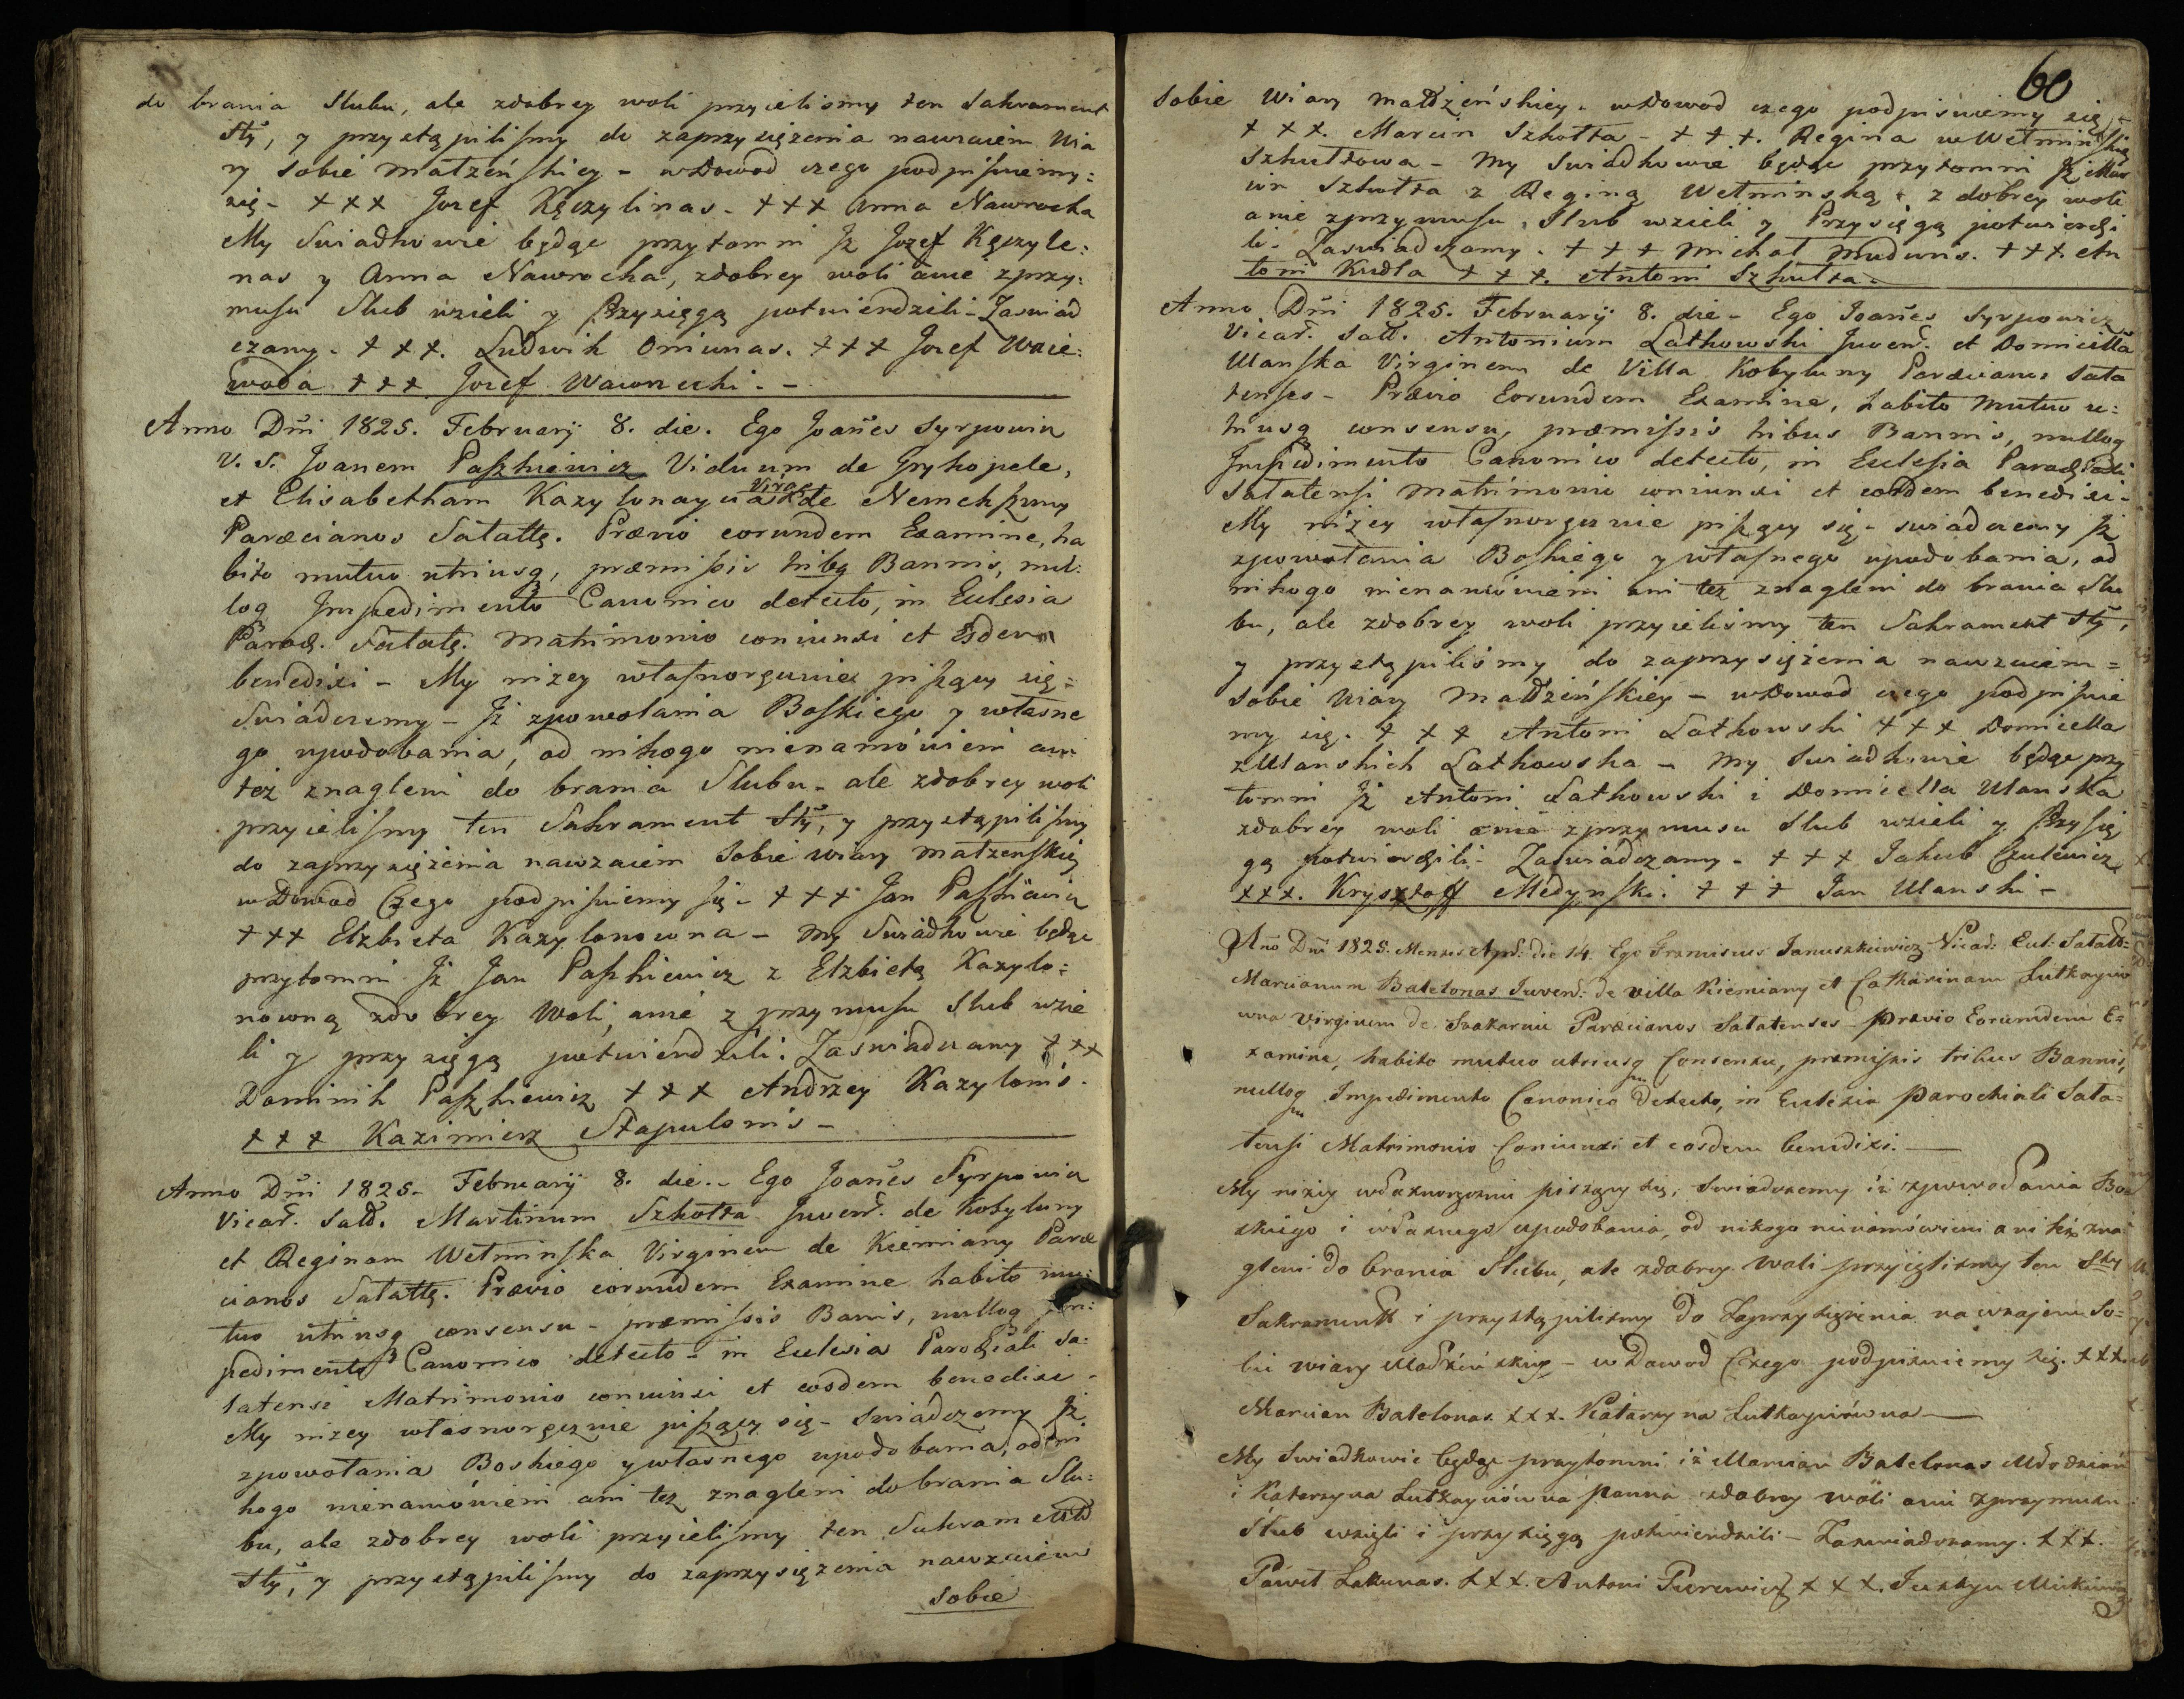 do brania Slubu, ale zdobrey woli przyielismy ten Sakrament
Sty, y przystąpilismy do zaprzysiężenia nawzaiem Wia
ry sobie małżeńskiey - wdowod czego podpisuiemy:
się - +++ Jozef Kęczylinas - +++ Anna Nawrocka
My Swiadkowie będąc przytomni Jż Jozef Kęczyle:
nas y Anna Nawrocka, zdobrey woli anie zprzy:
musu Slub wzieli y Przysięgą potwierdzili - Zaswiad
czamy - +++. Ludwik Oniunas. +++ Jozef Woie:
woda +++ Jozef Wawrzecki. -
Anno Dñi 1825. Februarij 8. die. Ego Joañes Syrpowicz
V. S. Joanem Paszkiewicz Viduum de Grykopele,
et Elisabetham Kazylonayc Virg de Nemekszuny
Paræcianos Sałatts. Prævio eorundem Examine, ha
bito mutuo utriusq, præmissis tribq Bannis, nul:
loq Impedimento Canonico detecto, in Eclesia
Paroch. Sałats. Matrimonio coniunxi et Eosdem
benedixi - My niżey własnoręcznie piszący się =
Swiadczemy - Jż zpowołania Boskiego y własne
go upodobania, od nikogo nienamówieni ani
też znagleni do brania Slubu - ale zdobrey woli
przyielismy ten Sakrament Sty, y przystąpilismy
do zaprzysiężenia nawzaiem sobie wiary małżenskiey
wdowod Czego podpisuiemy się - +++ Jan Paszkiewicz
+++ Elzbieta Kazylonowna - My Swiadkowie będąc
przytomni Jż Jan Paszkiewicz z Elzbietą Kazylo:
nowną zdobrey Woli, anie z przymusu Slub wzie
li y przysięgą potwierdzili. Zaswiadczamy +++
Dominik Paszkiewicz +++ Andrzey Kazylonis.
+++ Kazimierz Stapulonis -
Anno Dñi 1825. Februarij 8. die. - Ego Joañes Syrpowicz
Vicar. Sałł. Martinum Szkołta Juven. de Kobyluny
et Reginam Wetminska Virginem de Kiemiany Paræ
cianos Sałatts. Prævio eorundem Examine habito mu:
tuo utriusq consensu - præmissis Banis, nulloq Im:
pedimento Canonico detecto - in Eclesia Parochiali Sa:
łatensi Matrimonio coniunxi et eosdem benedixi -
My niżey własnoręcznie piszący się - swiadczemy Jż
zpowołania Boskiego y własnego upodobania, od ni
kogo nienamówieni ani też znagleni do brania Slu:
bu, ale zdobrey woli przyielismy ten Sakrament
Sty, y przystąpilismy do zaprzysiężenia nawzaiem
sobie
60
Sobie Wiary małżeńskiey - wdowod czego podpisuiemy się -
+++. Marcin Szkołta - +++. Regina z Wetminskich
Szkułtowa - My Swiadkowie będąc przytomni Jż Mar
cin Szkołta z Reginą Wetminską z dobrey woli
anie zprzymusu, Slub wzieli y Przysięgą potwierdzi
li - Zaswiadczamy. +++ Michał Mudunis. +++. An
toni Kudla +++. Antoni Szkułta.
Anno Dñi 1825. Februarij 8. die - Ego Joañes Syrpowicz
Vicar. Sałł. Antonium Łatkowski Juven. et Domicella
Ulanska Virginem de Villa Kobyluny Paræcianos Sała
tenses - Prævio Eorundem Examine, habito Mutuo u:
triusq consensu, præmissis tribus Bannis, nulloq
Impedimento Canonico detecto, in Eclesia Parochiali
Sałatensi Matrimonio coniunxi et eosdem benedixi -
My niżey własnoręcznie piszący się - swiadczemy Jż
zpowołania Boskiego y własnego upodobania, od
nikogo nienamówieni ani też znagleni do brania Slu
bu, ale zdobrey woli przyielismy ten Sakrament Sty,
y przystąpilismy do zaprzysiężenia nawzaiem =
sobie wiary Małżeńskiey - wdowod czego podpisuie
my się. +++ Antoni Łatkowski +++ Domicella
z Ulanskich Łatkowska - My Swiadkowie będąc przy
tomni Jż Antoni Łatkowski i Domicella Ulanska
zdobrey woli anie zprzymusu Slub wzieli y Przysię
gą potwierdzili - Zaswiadczamy - +++ Jakub Czulewicz
+++. Krysztoff Medynski. +++ Jan Ulanski -
Año Dñi 1825. Mensis Apr: die 14. Ego Franciscus Januszkiewicz Vicar: Ecl: Sałatt:
Marcianum Batelonas Juven: de villa Kiemiany et Catharinam Łutkayciow
wna virginem de Szakarnie Paræcianos Sałatenses - prævio Eorumdem E=
xamine, habito mutuo utriusq Consensu, præmissis tribus Bannis,
nulloq Impedimento Canonico detecto, in Eclesia Parochiali Sała=
tensi Matrimonio Coniunxi et eosdem benedixi. -
My niżey własnoręcznie piszący się, swiadczemy iż zpowołania Bo
skiego i własnego upodobania, od nikogo nienamówieni ani też zna
gleni do brania Slubu, ale zdobrey woli przyięlismy ten Sty
Sakrament i przystąpilismy do Zaprzysiężenia nawzajem So=
bie wiary Małżeńskiey - w Dowod Czego podpisuiemy się. +++.
Marcian Batelonas. +++. Katarzyna Łutkayciówna -
My Swiadkowie będąc przytomni iż Marcian Batelonas Młodzian
i Katarzyna Łutkayciówna panna zdobrey woli ani zprzymusu
Slub wzięli i przysięgą potwierdzili - Zaswiadczamy. +++.
Paweł Łakunas. +++. Antoni Purewicz +++. Justyn Mickiewicz